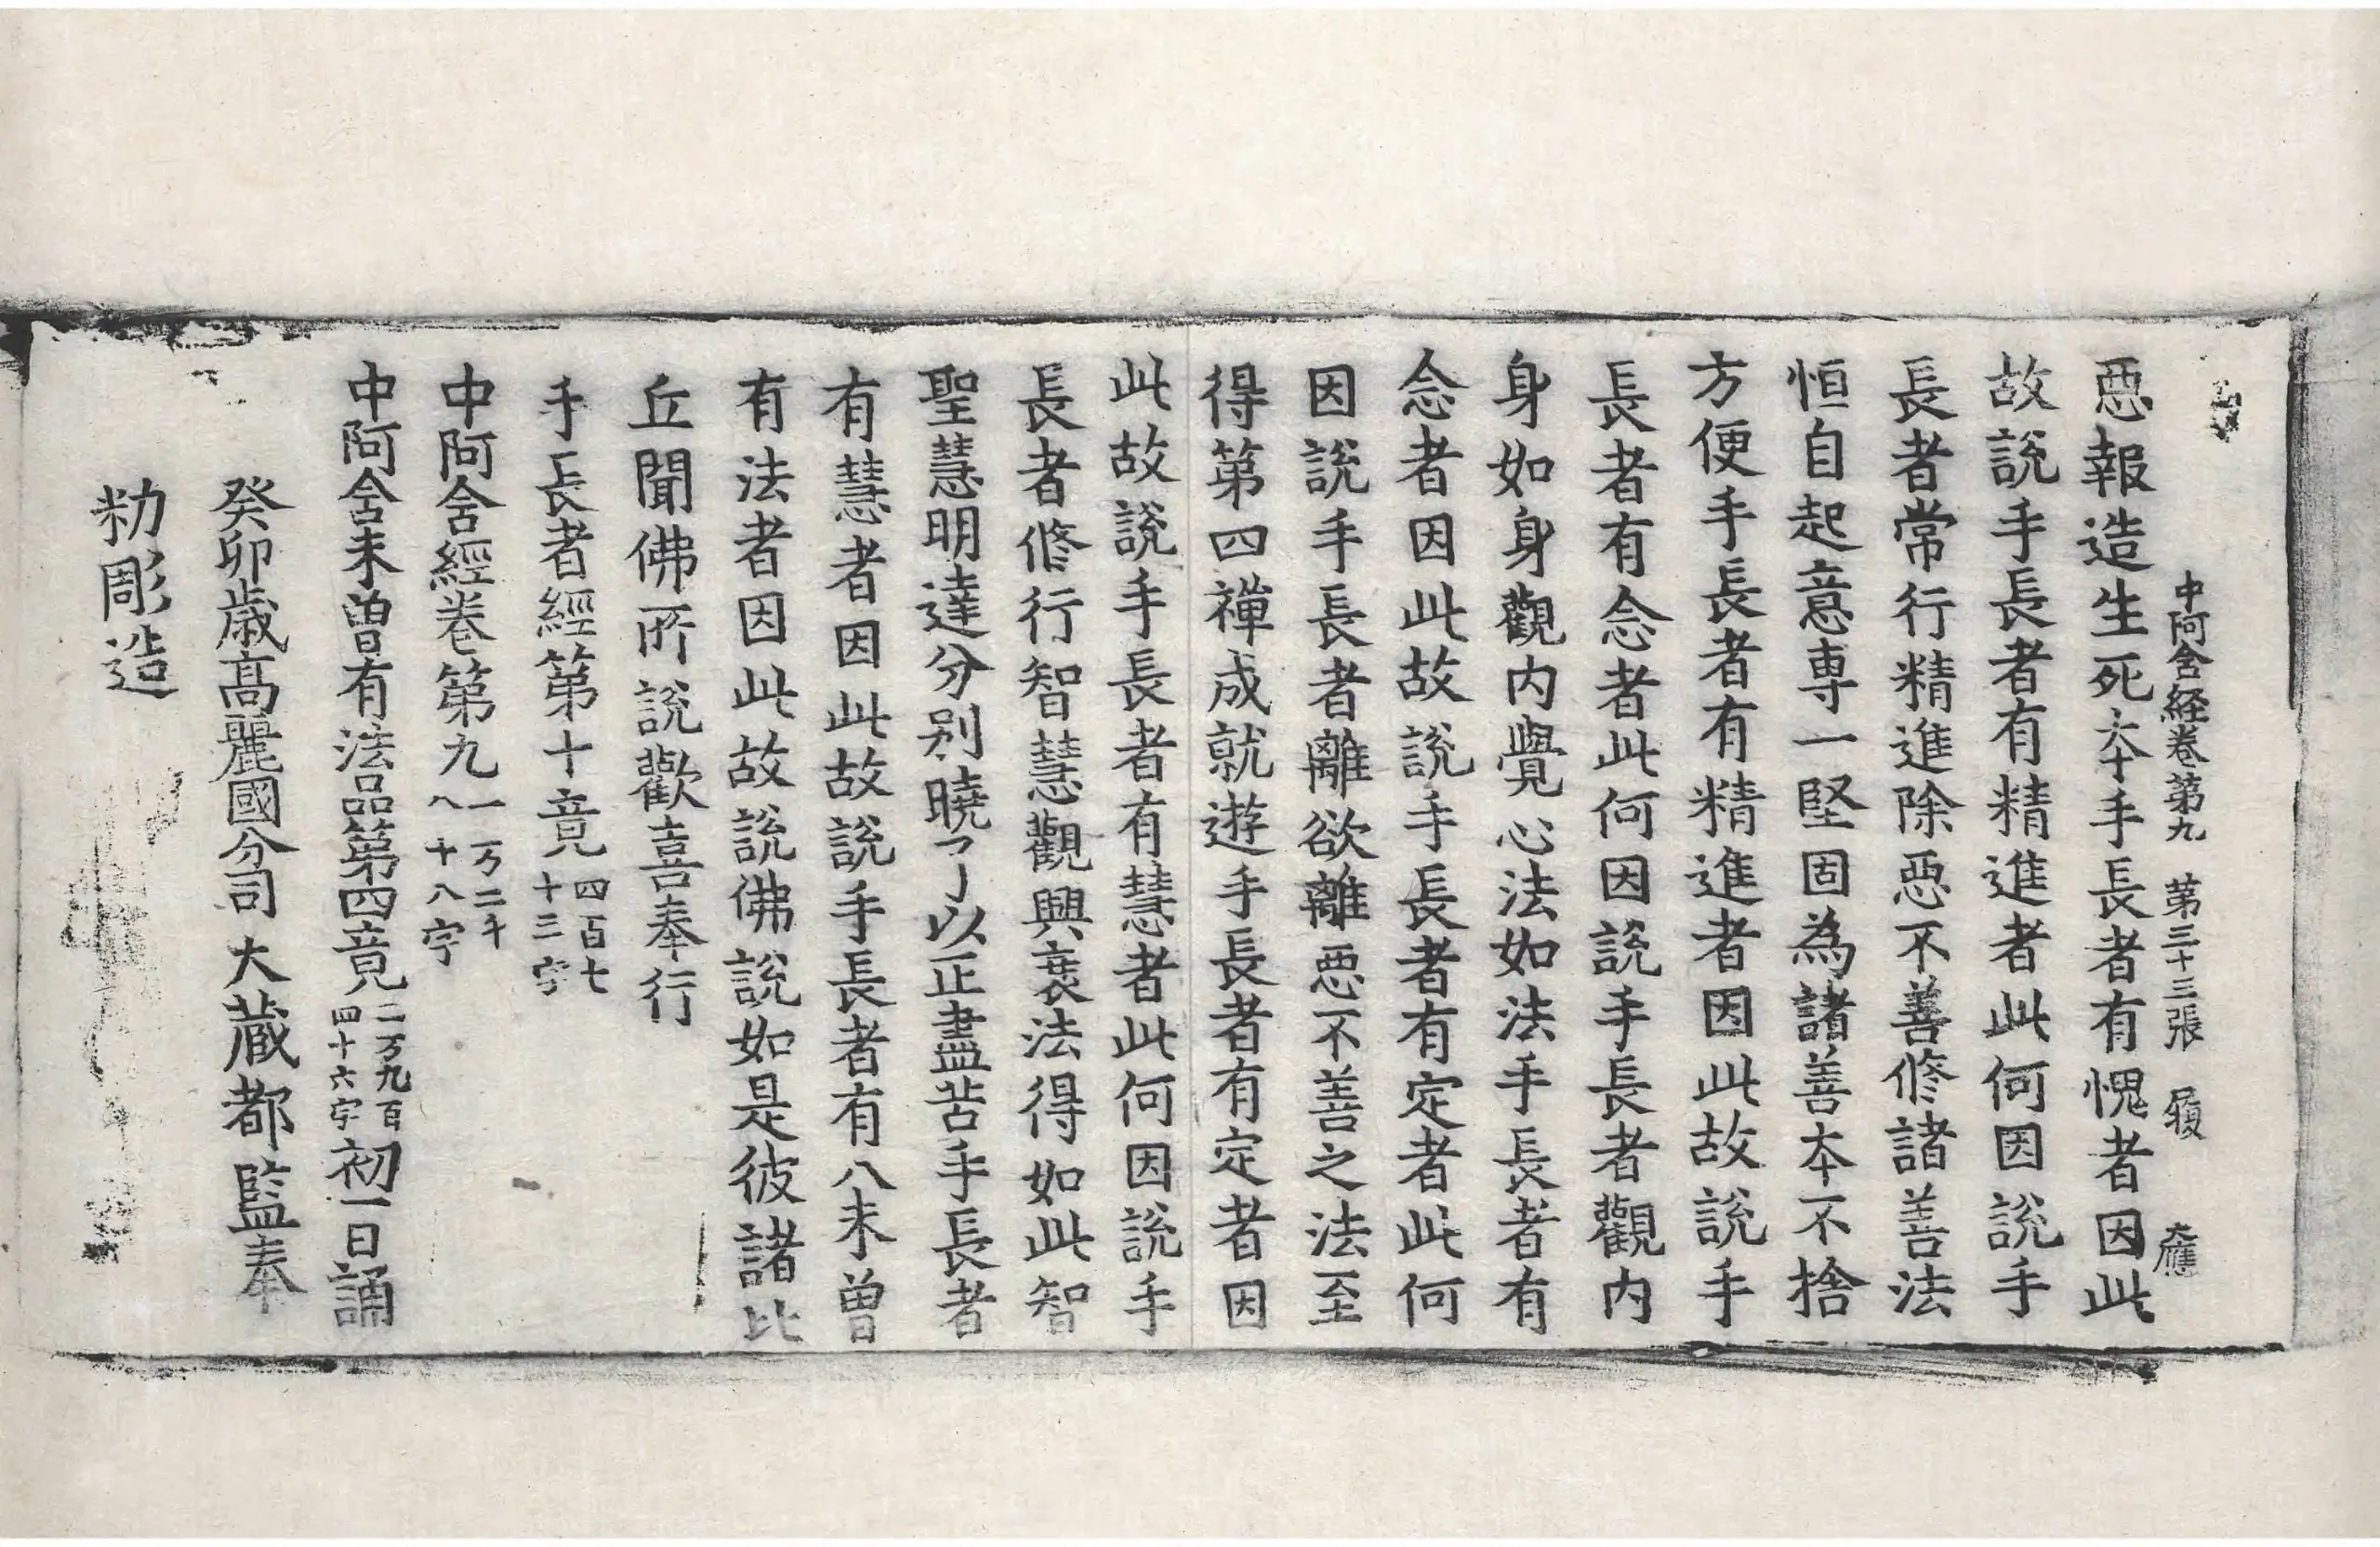 中阿含経卷第九 第三十三張 履 大應
惡報造生死本手長者有愧者因此
故說手長者有精進者此何因說手
長者常行精進除惡不善修諸善法
恒自起意専一堅固為諸善本不捨
方便手長者有精進者因此故說手
長者有念者此何因說手長者觀内
身如身觀内覺心法如法手長者有
念者因此故說手長者有定者此何
因說手長者離欲離惡不善之法至
得第四禪成就遊手長者有定者因
此故說手長者有慧者此何因說手
長者修行智慧觀興衰法得如此智
聖慧明達分別曉了以正盡苦手長者
有慧者因此故說手長者有八未曽
有法者因此故說佛說如是彼諸比
丘聞佛所說歡喜奉行
手長者經第十竟四百七十三字
中阿含經卷第九一万二千八十八字
中阿含未曽有法品第四竟二万九百四十六字初一日誦
癸卯歳高麗國分司大蔵都監奉
勑彫造